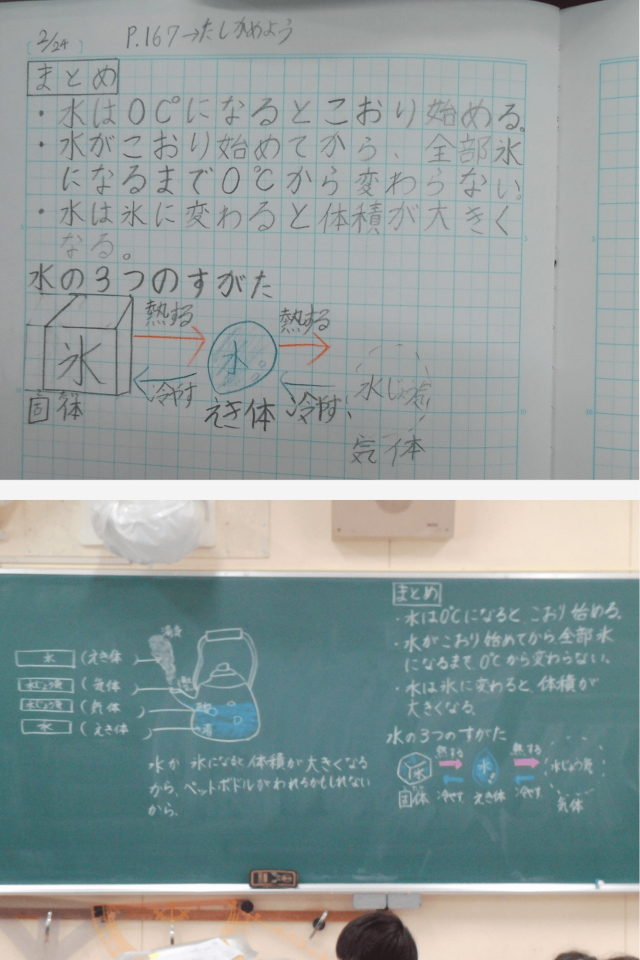 2/24
P.167→たしかめよう
まとめ
・水は0C°になるとこおり始める。
・水がこおり始めてから、全部氷
になるまで0℃から変わらない。
・水は氷に変わると体積が大きく
なる。
水の3つのすがた
熱する
熱する
氷
水
水じょう気
冷やす
冷やす
固体
えき体
気体
まとめ
・水は0℃になると、こおり始める。
・水がこおり始めてから全部氷
になるまで0℃から変わらない。
・水は氷に変わると、体積が
大きくなる。
水の3つのすがた
熱する
熱する
氷
水
水じょう気
固体
冷やす
えき体
冷やす
気体
湯気
水
(えき体
水じょう気
(気体
)
水じょう気
(気体
)
水
(えき体
)
水が氷になると体積が大きくなる
から、ペットボトルがわれるかもしれない
から。